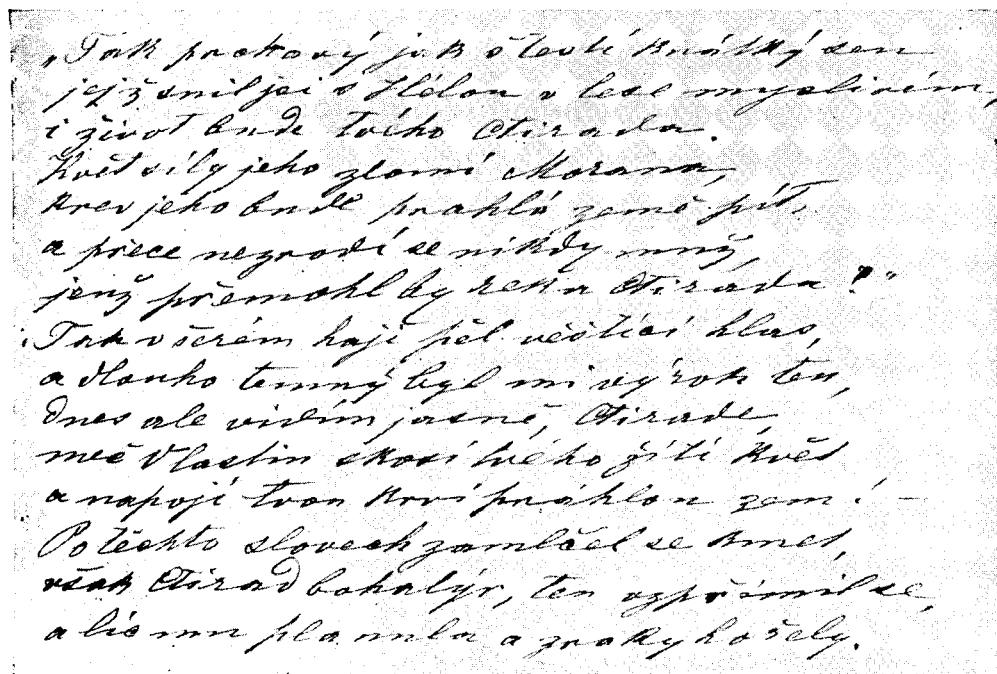 „Tak prchavý jak štěstí krátký sen
jejž snil jsi s Hélou v lese myslivém,
i život bude tvého Ctirada.
Květ síly jeho zlomí Morana,
krev jeho bude prahlá země pít,
a přece nezrodí se nikdy muž,
jenž přemohl by reka Ctirada?“
Tak v šerém háji pěl věštící hlas,
a dlouho temný byl mi výrok ten,
dnes ale vidím jasně, Ctirade,
meč Vlastin skosí tvého žití květ
a napojí tvou krví práhlou zemi –
Po těchto slovech zamlčel se kmet,
však Ctirad bohatýr, ten vzpřímil se,
a líc mu planula a zraky hořely.